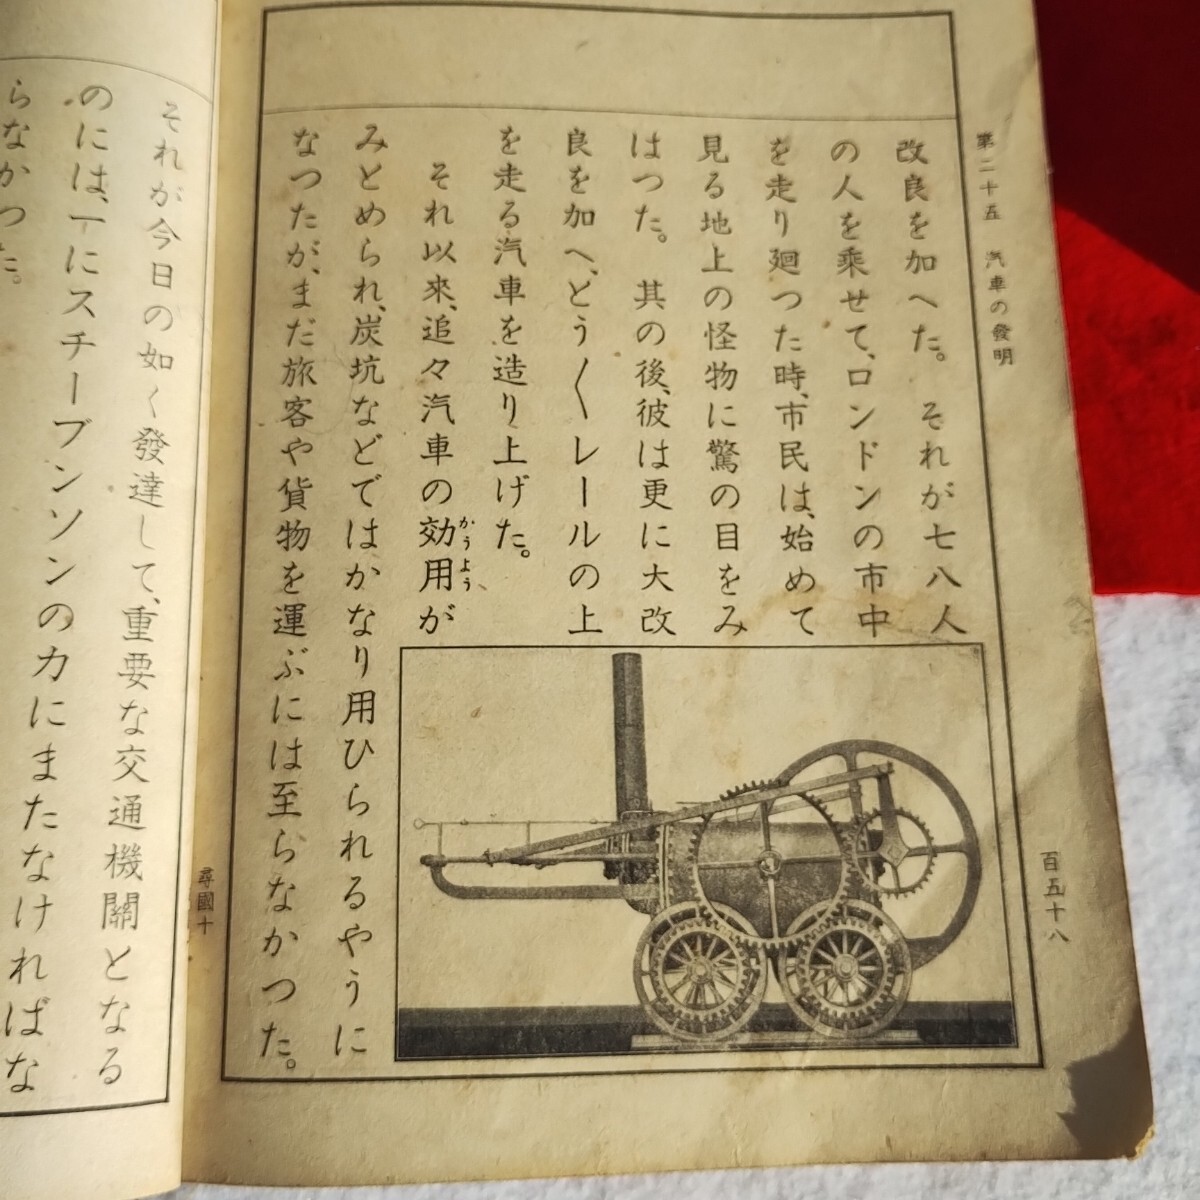 第二十五 汽車の發明
百五十八
改良を加へた。 それが七八人
の人を乘せて、ロンドンの市中
を走り廻つた時、市民は、始めて
見る地上の怪物に驚の目をみ
はつた。 其の後、彼は更に大改
良を加へ、とう〳〵レールの上
を走る汽車を造り上げた。
それ以來、追々汽車の効用が
かうよう
みとめられ、炭坑などではかなり用ひられるやうに
なつたが、まだ旅客や貨物を運ぶには至らなかつた。
尋國十
それが今日の如く發達して、重要な交通機關となる
のには、一にスチーブンソンの力にまたなければな
らなかつた。